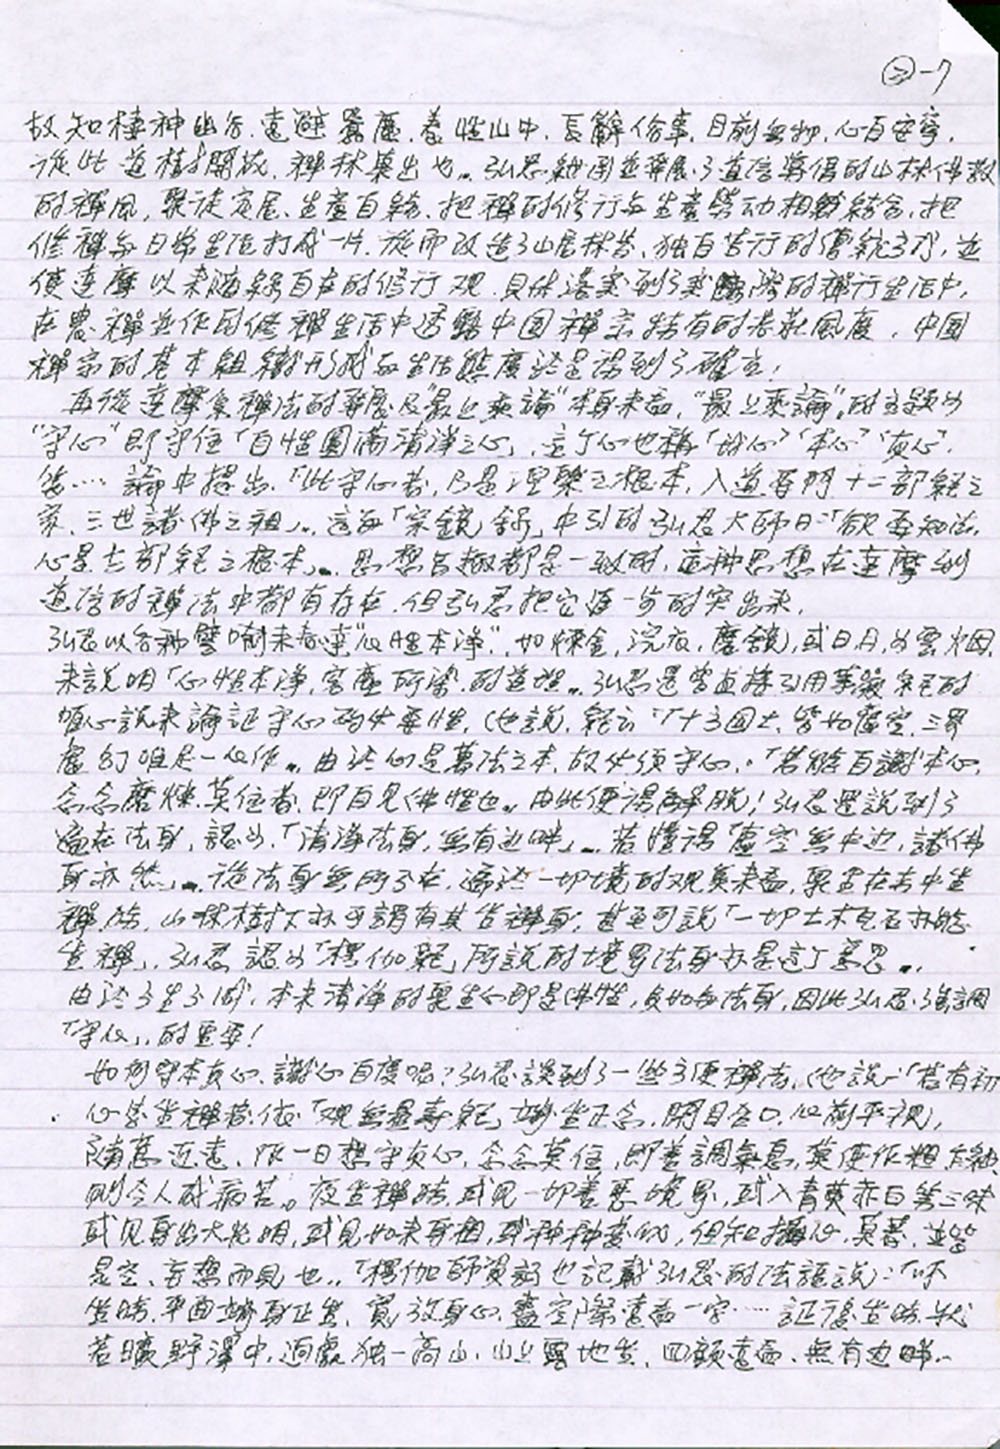 ㊁-7
故知棲神幽谷,遠避囂塵,養性山中,長辭俗事,目前無物,心自安寧,
從此道樹開花,禪林菓出也。弘忍繼團並發展了道信夢倡的山林佛教
的禪風,聚徒定居、生產自給、把禪的修行与生產勞动相結合,把
修禪与日常生活打成一片,從而改造了山居林苦、独自苦行的傳統方式,並
使達摩以来随緣自在的修行观,具体落实到了实際的禪行生活中,
在農禪並作的修禪生活中透露中国禪宗特有的風度,中國
禪宗的基本組織形成与生活態度於是得到了確立,
再從達摩系禪法的發展及"最上乘論"本身来看,"最上乘論"的主題为
"守心"即守住「自性圓滿清淨之心」,这个心也稱「妙心」「本心」「真心」
等……論中提出,「此守心者,乃是涅槃之根本,入道要門,十二部經之
宗,三世諸佛之祖」。這与「宗鏡錄」中引的弘忍大師曰:「欲要知法,
心是十二部經之根本」。思想旨趣都是一致的,這种思想在達摩到
道信的禪法中都有存在,但弘忍把它進一步的突出来,
弘忍以各种譬喻来表達"心性本淨",如煉金,浣衣,磨鏡,或日月,为雲烟,
来說明「心性本淨,客塵所染」的道理。弘忍還曾直接引用等經的
唯心說来論証守心的必要性,他說,經云:「十方國土,皆如虛空,三界
虛幻唯是一心作」。由於心是萬法之本,故必須守心,「若能自識本心,
念念磨煉,莫住者,即自見佛性也」由此便得解脫!弘忍還說到了
遍在法身,認为,「清淨法身,無有边畔」。若懂得「虛空無中边,諸佛
身亦然」。從法身無所不在,遍於一切境的观点来看,眾生在寺中坐
禪时,山林樹下亦可謂有其坐禪身,甚至可說「一切土木瓦石亦能
坐禪」,弘忍認为「楞伽經」所說的境界法身亦是这个意思。
由於不生不滅,本来清淨的眾生心即是佛性,真如与法身,因此弘忍強調
「守心」的重要!
如何守本真心,識心自度呢?弘忍談到了一些方便禪法,他說:「若有初
心学坐禪者,依「观無量壽經」端坐正念,閉目合口,心前平視,
随意近遠,作一日想守真心,念念莫住,即善調氣息,莫使作粗乍細
則令人成病苦。夜坐禪時,或見一切善惡境界,或入青黃赤白等三昧
或見身出大光明,或見如来身相,或种种變化,但知攝心,莫著,並皆
是空、妄想而見也」,「楞伽師資記也記載弘忍的法語說:「你
坐時,平面端身正坐,寬放身心,盡空際遠看一字……証後坐時,狀
若曠野澤中,迥處独一高山,山上露地坐,四顧遠看,無有边畔。